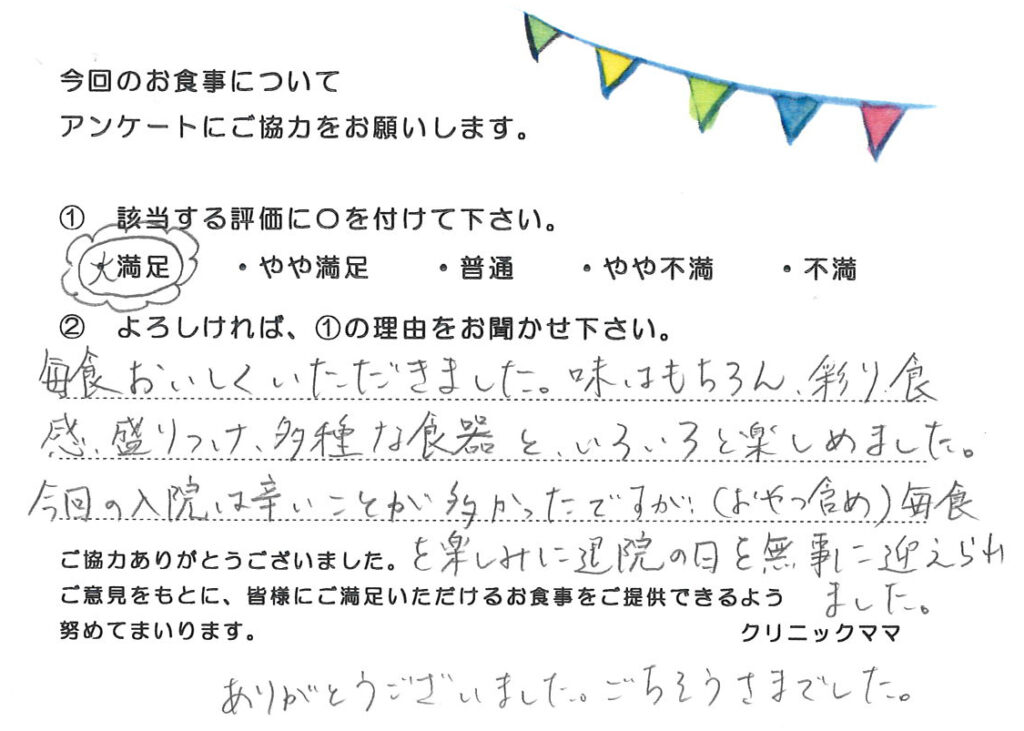 今回のお食事について
アンケートにご協力をお願いします。
① 該当する評価に〇を付けて下さい。
大満足 ・やや満足 ・普通 ・やや不満 ・不満
② よろしければ、①の理由をお聞かせ下さい。
毎食おいしくいただきました。味はもちろん、彩り、食
感、盛りつけ、多種な食器と、いろいろと楽しめました。
今回の入院は辛いことが多かったですが、(おやつ含め)毎食
を楽しみに退院の日を無事に迎えられ
ました。
ご協力ありがとうございました。
ご意見をもとに、皆様にご満足いただけるお食事をご提供できるよう
努めてまいります。
クリニックママ
ありがとうございました。ごちそうさまでした。